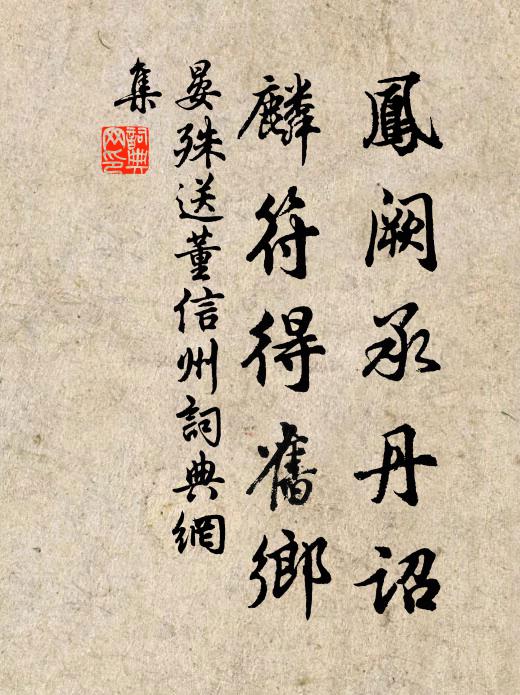 鳳阙承丹詔
麟符得舊鄉
晏殊送董信州詞典網
集
詞典
网印